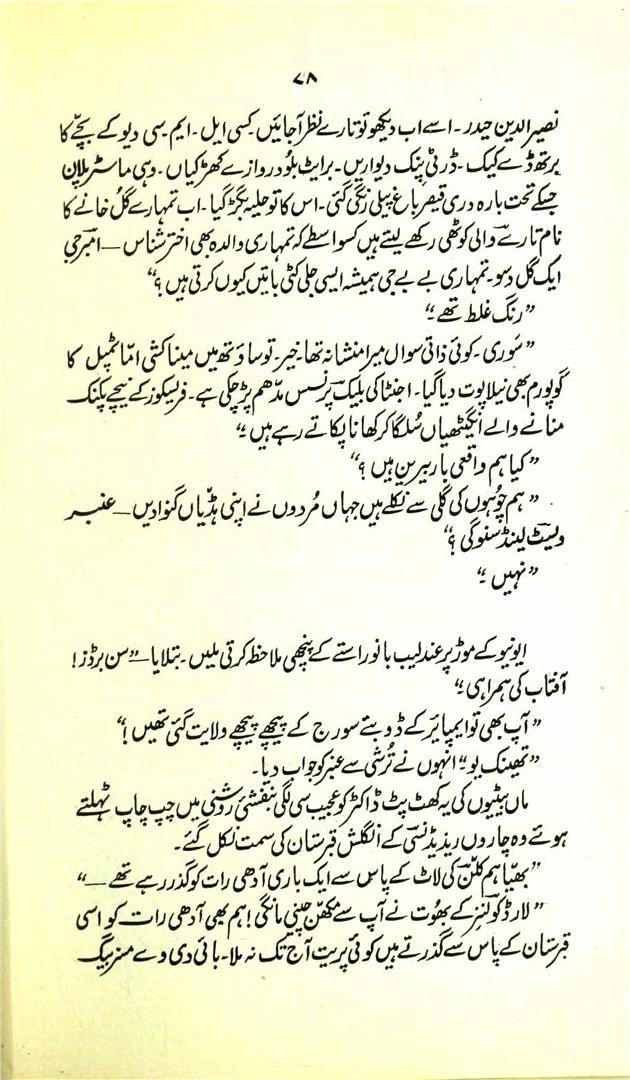 ۷۸
نصیر الدین حیدر۔ اسے اب دیکھو تو تارے نظر آجائیں۔ کسی ایل۔ ایم۔ سی دیو کے بچے کا
برتھ ڈے کیک۔ ڈرٹی پنک دیواریں۔ برائیٹ بلو دروازے کھڑکیاں۔ وہی ماسٹر پلان
جسکے تحت بارہ دری قیصر باغ پیلی رنگی گئی۔ اس کا تو حلیہ بگڑ گیا۔ اب تمہارے گل خانے کا
نام تارے والی کوٹھی رکھے لیتے ہیں کسواسطے کہ تمہاری والدہ بھی اختر شناس — امبرجی
ایک گل دسو۔ تمہاری بے بے جی ہمیشہ ایسی جلی کٹی باتیں کیوں کرتی ہیں؟“
”رنگ غلط تھے۔“
”سَوری۔ کوئی ذاتی سوال میرا منشا نہ تھا۔ خیر۔ تو ساؤتھ میں میناکشی امّا ٹمپل کا
گوپورم بھی نیلا پوت دیا گیا۔ اجنٹا کی بلیک پرنسس مدّھم پڑ چکی ہے۔ فریسکوز کے نیچے پکنک
منانے والے انگیٹھیاں سُلگا کر کھانا پکاتے رہے ہیں۔“
”کیا ہم واقعی باربیرین ہیں؟“
”ہم چُوہوں کی گلی سے نکلے ہیں جہاں مُردوں نے اپنی ہڈّیاں گنوا دیں — عنبر
ویسٹ لینڈ سنو گی؟“
”نہیں۔“
ایونیو کے موڑ پر عندلیب بانو راستے کے پنچھی ملاحظہ کرتی ملیں۔ بتلایا — ”سن برڈز!
آفتاب کی ہمراہی۔“
”آپ بھی تو ایمپائر کے ڈوبتے سورج کے پیچھے پیچھے ولایت گئی تھیں!“
”تھینک یو“ انہوں نے تُرشی سے عنبر کو جواب دیا۔
ماں بیٹیوں کی یہ کھٹ پٹ ڈاکٹر کو عجیب سی لگی۔ بنفشئی روشنی میں چپ چاپ ٹہلتے
ہوئے وہ چاروں ریذیڈنسی کے انگلش قبرستان کی سمت نکل گئے۔
”بھیّا ہم کلّن کی لاٹ کے پاس سے ایک باری آدھی رات کو گذر رہے تھے —“
”لارڈ کولنز کے بھُوت نے آپ سے مکھّن چپنی مانگی! ہم بھی آدھی رات کو اسی
قبرستان کے پاس سے گذرتے ہیں کوئی پریت آج تک نہ ملا۔ بائی دی وے مسز بیگ